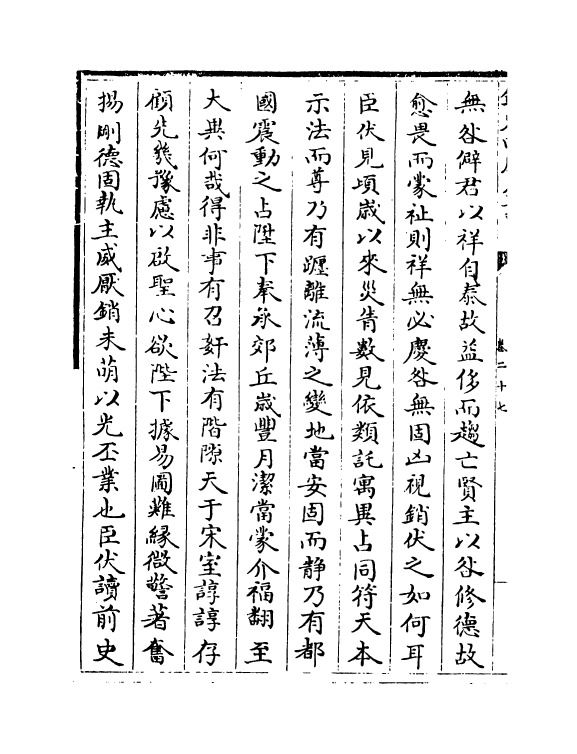 無咎僻君以祥自泰故益侈而趨亡賢主以咎修德故
愈畏而蒙祉則祥無必慶咎無固凶視銷伏之如何耳
臣伏見頃歲以來災眚數見依類託寓異占同符天本
示法而尊乃有躔離流薄之變地當安固而静乃有都
國震動之占陛下奉承郊丘嵗豐月潔當蒙介福翻至
大異何哉得非事有召奸法有階隙天于宋室諄諄存
顧先幾豫慮以啟聖心欲陛下據易圖難緣微警著奮
揚剛德固執主威厭銷未萌以光丕業也臣伏讀前史
卷二十七